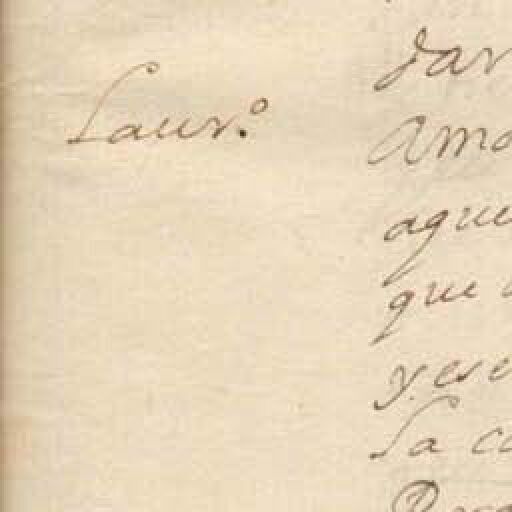 Laur.º
dar
Amo
ague
que
y ese
La co